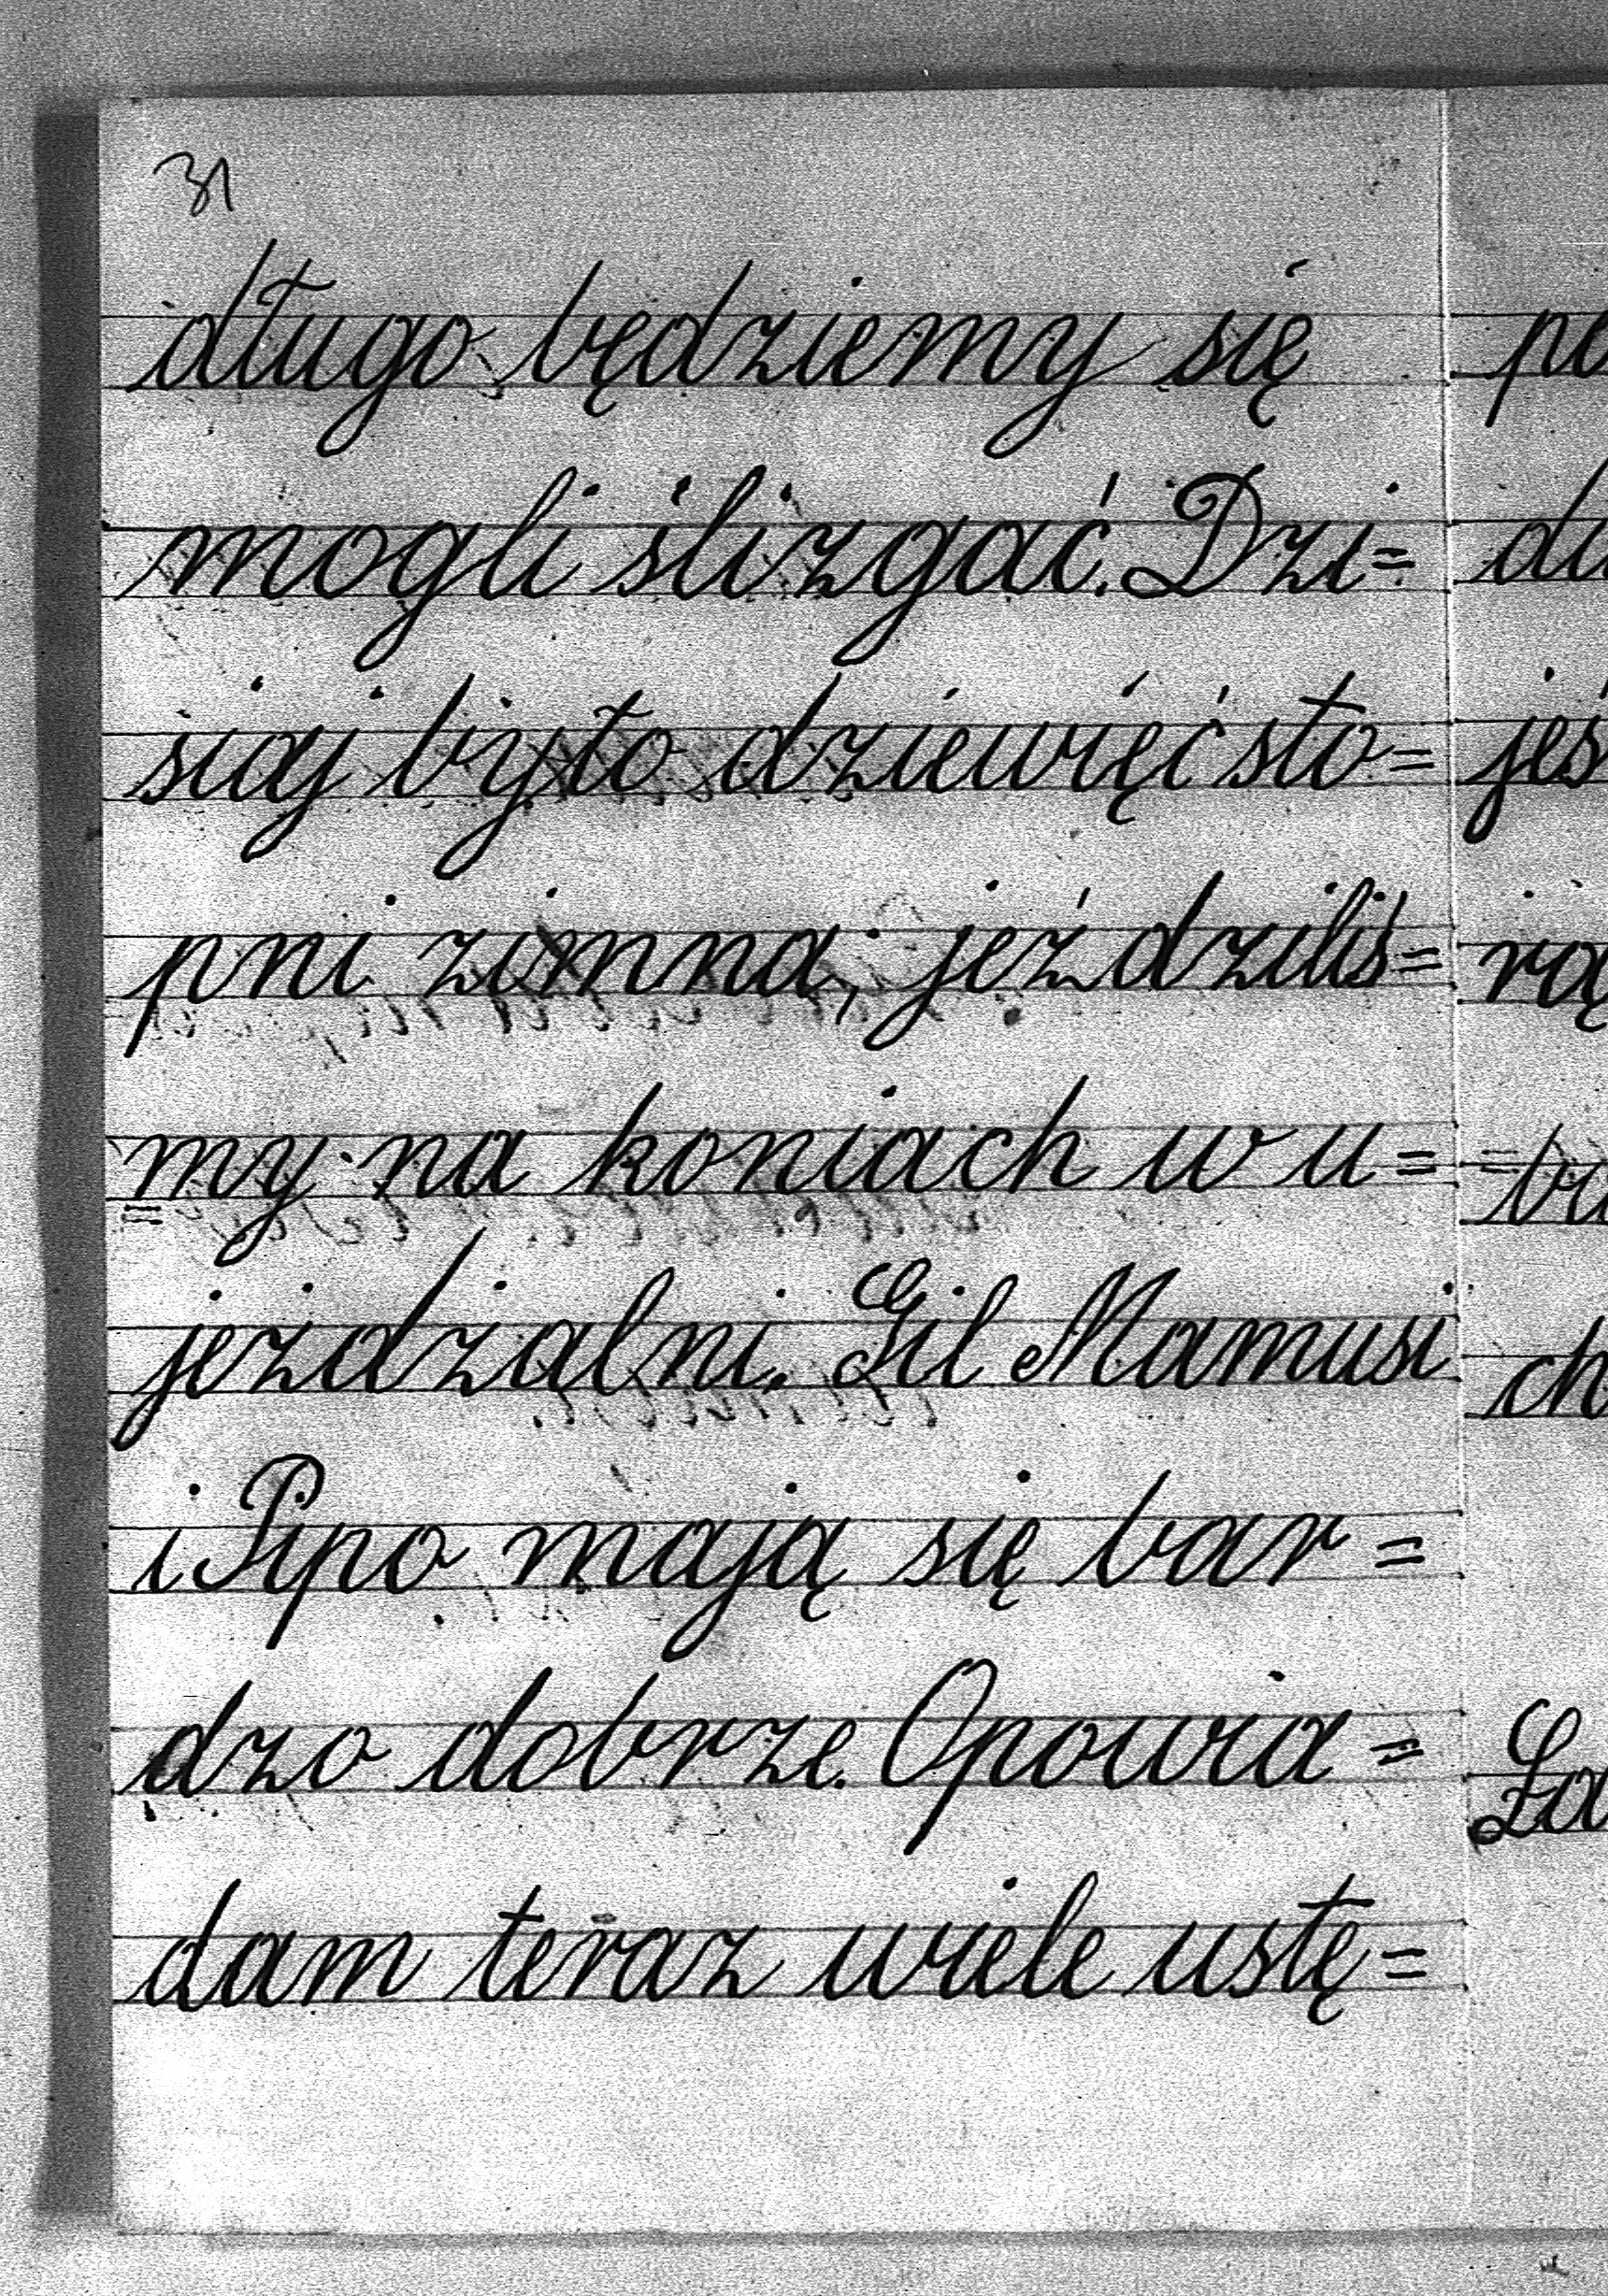 31
długo będziemy się
mogli ślizgać. Dzi=
siaj było dziewięć sto=
pni zimna, jeździliś=
my na koniach w u=
=jeżdżalni. Gil Mamusi
i Pipo mają się bar=
dzo dobrze. Opowia=
dam teraz wiele ustę=